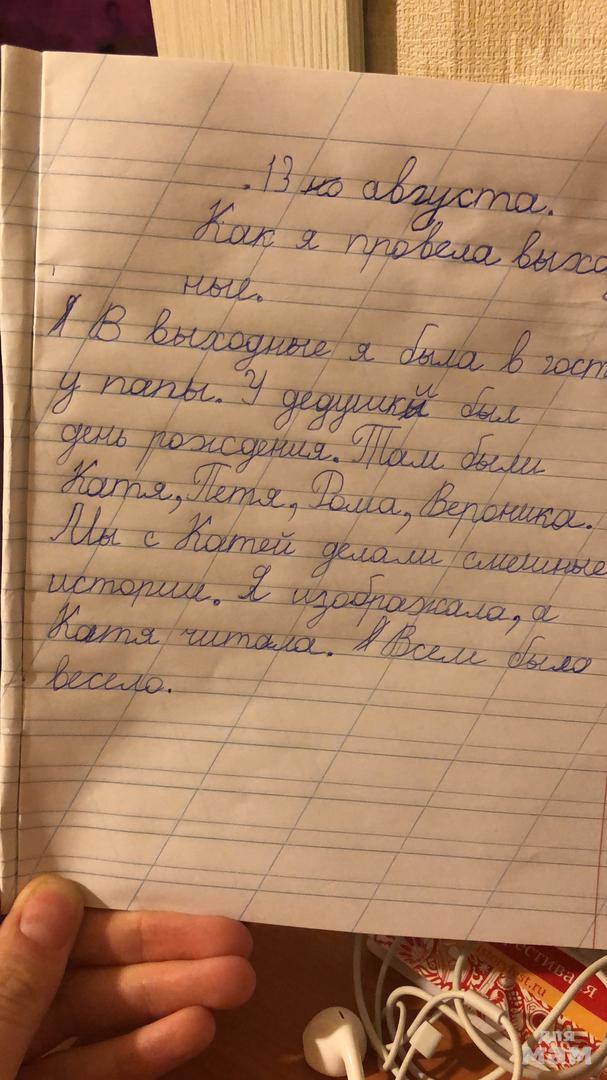 .13 но августа.
Как я провела выход
ные.
В выходные я была в гост
у папы. У дедушки был
день рождения. Там были
Катя, Петя, Рома, Вероника.
Мы с Катей делали смешные
истории. Я изображала, а
Катя читала. Всем было
весело.
стиваля
для
мам